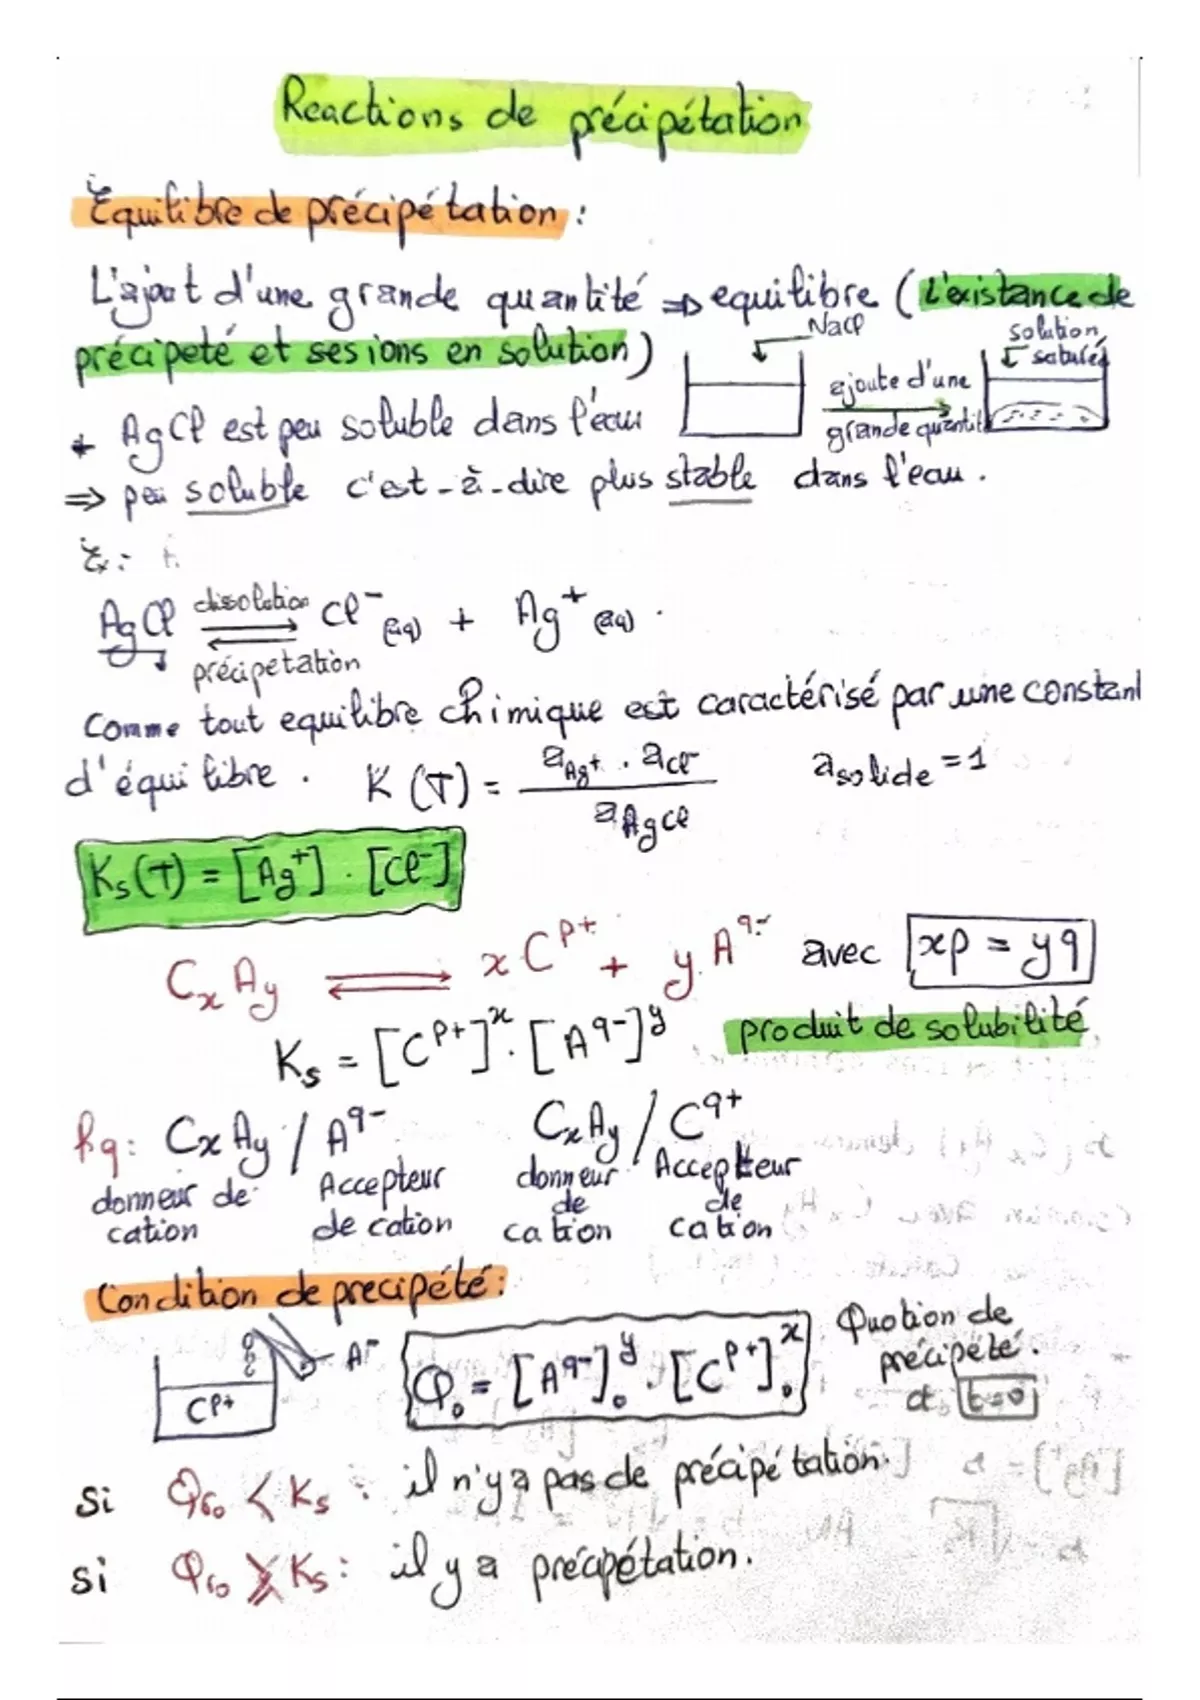 Reactions de précipétation
Equilibre de précipétation :
L'ajout d'une grande quantité ⇒ equilibre (L'existance de
précipeté et ses ions en solution)
NaCl
ajoute d'une
grande quantité
solution
saturée
+ AgCl est peu soluble dans l'eau
⇒ peu soluble c'est-à-dire plus stable dans l'eau.
Ex:
AgCl ⇌ Cl⁻(aq) + Ag⁺(aq).
dissolution
précipetation
Comme tout equilibre chimique est caractérisé par une constant
d'équilibre. K(T) = a_Ag⁺ . a_Cl⁻ / a_AgCl a_solide = 1
Ks(T) = [Ag⁺] . [Cl⁻]
CxAy ⇌ x C^p+ + y A^q- avec xp = yq
Ks = [C^p+]^x . [A^q-]^y produit de solubilité
Rq: CxAy / A^q- CxAy / C^q+
donneur de cation
Accepteur de cation
donneur de cation
Accepteur de cation
Condition de precipété:
A⁻
C^p+
Q₀ = [A^q-]₀^y . [C^p+]₀^x
Quotion de
précipété.
à t=0
si Qr₀ < Ks : il n'y a pas de précipétation.
si Qr₀ ≥ Ks : il y a précipétation.